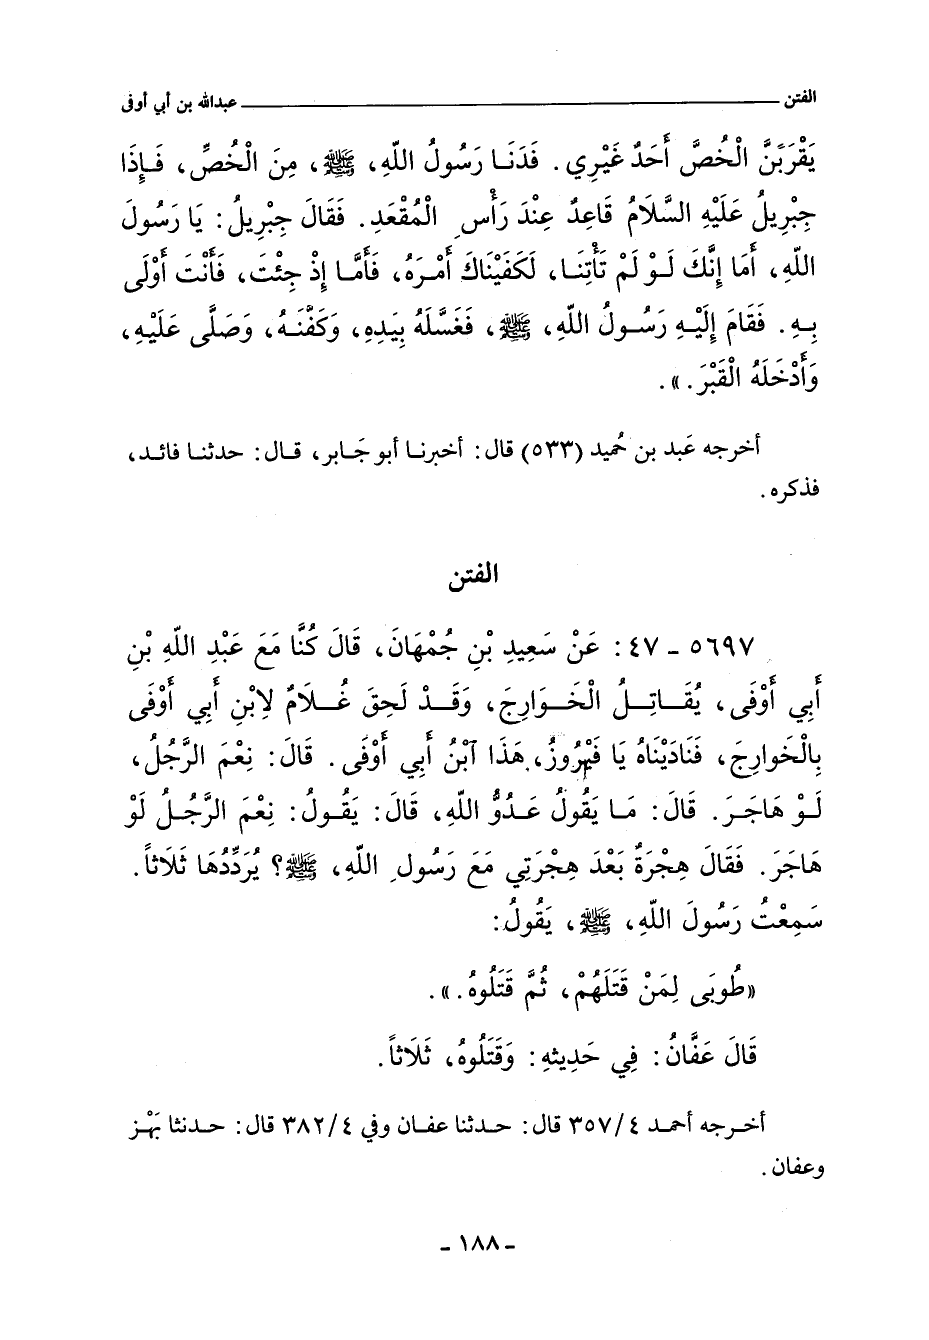 الفتن ــــــ عبدالله بن أبي أوفى
يَقْرَبَنَّ الْخُصَّ أَحَدٌ غَيْرِي. فَدَنَا رَسُولُ اللّهِ، ﷺ، مِنَ الْخُصِّ، فَإِذَا
جِبْرِيلُ عَلَيْهِ السَّلَامُ قَاعِدٌ عِنْدَ رَأْسِ الْمُقْعَدِ. فَقَالَ جِبْرِيلُ: يَا رَسُولَ
اللّهِ، أَمَا إِنَّكَ لَوْ لَمْ تَأْتِنَا، لَكَفَيْنَاكَ أَمْرَهُ، فَأَمَّا إِذْ جِئْتَ، فَأَنْتَ أَوْلَى
بِهِ. فَقَامَ إِلَيْهِ رَسُولُ اللّهِ، ﷺ، فَغَسَّلَهُ بِيَدِهِ، وَكَفَّنَهُ، وَصَلَّى عَلَيْهِ،
وَأَدْخَلَهُ الْقَبْرَ.».
أخرجه عَبد بن حُميد (٥٣٣) قال: أخبرنا أبو جَابر، قال: حدثنا فائد،
فذكره.
الفتن
٥٦٩٧ - ٤٧: عَنْ سَعِيدِ بْنِ جُمْهَانَ، قَالَ كُنَّا مَعَ عَبْدِ اللّهِ بْنِ
أَبِي أَوْفَى، يُقَاتِلُ الْخَوَارِجَ، وَقَدْ لَحِقَ غُلَامٌ لِابْنِ أَبِي أَوْفَى
بِالْخَوارِجَ، فَنَادَيْنَاهُ يَا فَيْرُوزُ، هَذَا ابْنُ أَبِي أَوْفَى. قَالَ: نِعْمَ الرَّجُلُ،
لَوْ هَاجَرَ. قَالَ: مَا يَقُولُ عَدُوُّ اللّهِ، قَالَ: يَقُولُ: نِعْمَ الرَّجُلُ لَوْ
هَاجَرَ. فَقَالَ هِجْرَةٌ بَعْدَ هِجْرَتِي مَعَ رَسُولِ اللّهِ، ﷺ؟ يُرَدِّدُهَا ثَلَاثاً.
سَمِعْتُ رَسُولَ اللّهِ، ﷺ، يَقُولُ:
«طُوبَى لِمَنْ قَتَلَهُمْ، ثُمَّ قَتَلُوهُ.».
قَالَ عَفَّانُ: فِي حَدِيثِهِ: وَقَتَلُوهُ، ثَلَاثاً.
أخرجه أحمد ٤/٣٥٧ قال: حدثنا عفان وفي ٤/٣٨٢ قال: حدثنا بَهْز
وعفان.
- ١٨٨ -